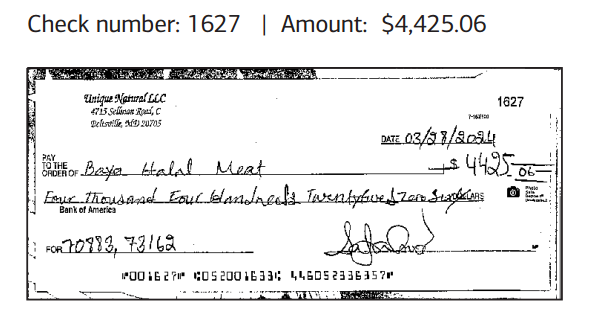 Check number: 1627 | Amount: $4,425.06
Unique Natural LLC
4715 Sellman Road, C
Beltsville, MD 20705
1627
DATE 03/28/2024
PAY
TO THE
ORDER OF Baya Halal Meat $ 4425 06
Four Thousand Four Hundred Twentyfive & Zero Six DOLLARS
Bank of America
FOR 70883, 73162
⑈001627⑈ ⑆052001633⑆ 446052336357⑈